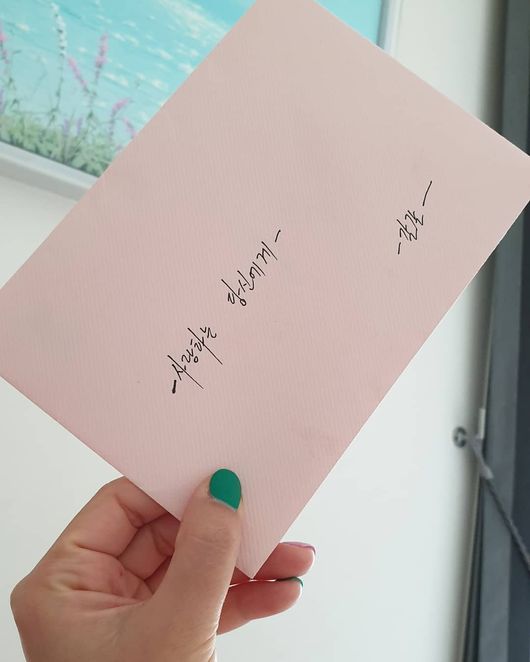 사랑하는 당신에게